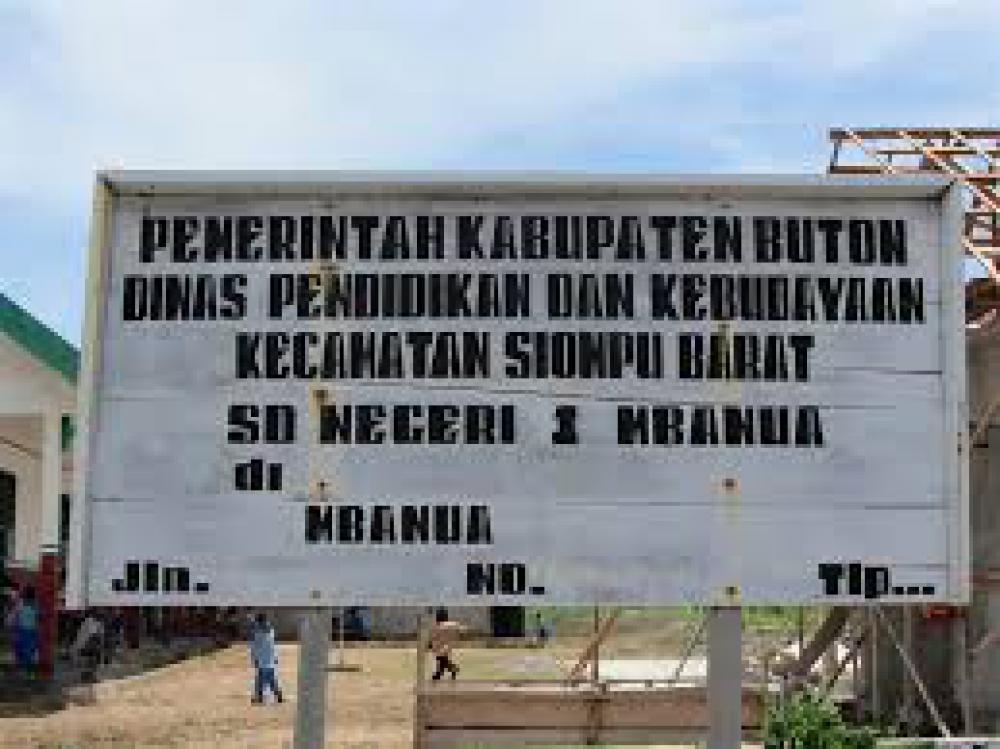 PEMERINTAH KABUPATEN BUTON
DINAS PENDIDIKAN DAN KEBUDAYAAN
KECAMATAN SIOMPU BARAT
SD NEGERI 1 MBANUA
di
MBANUA
Jln. NO. Tlp...